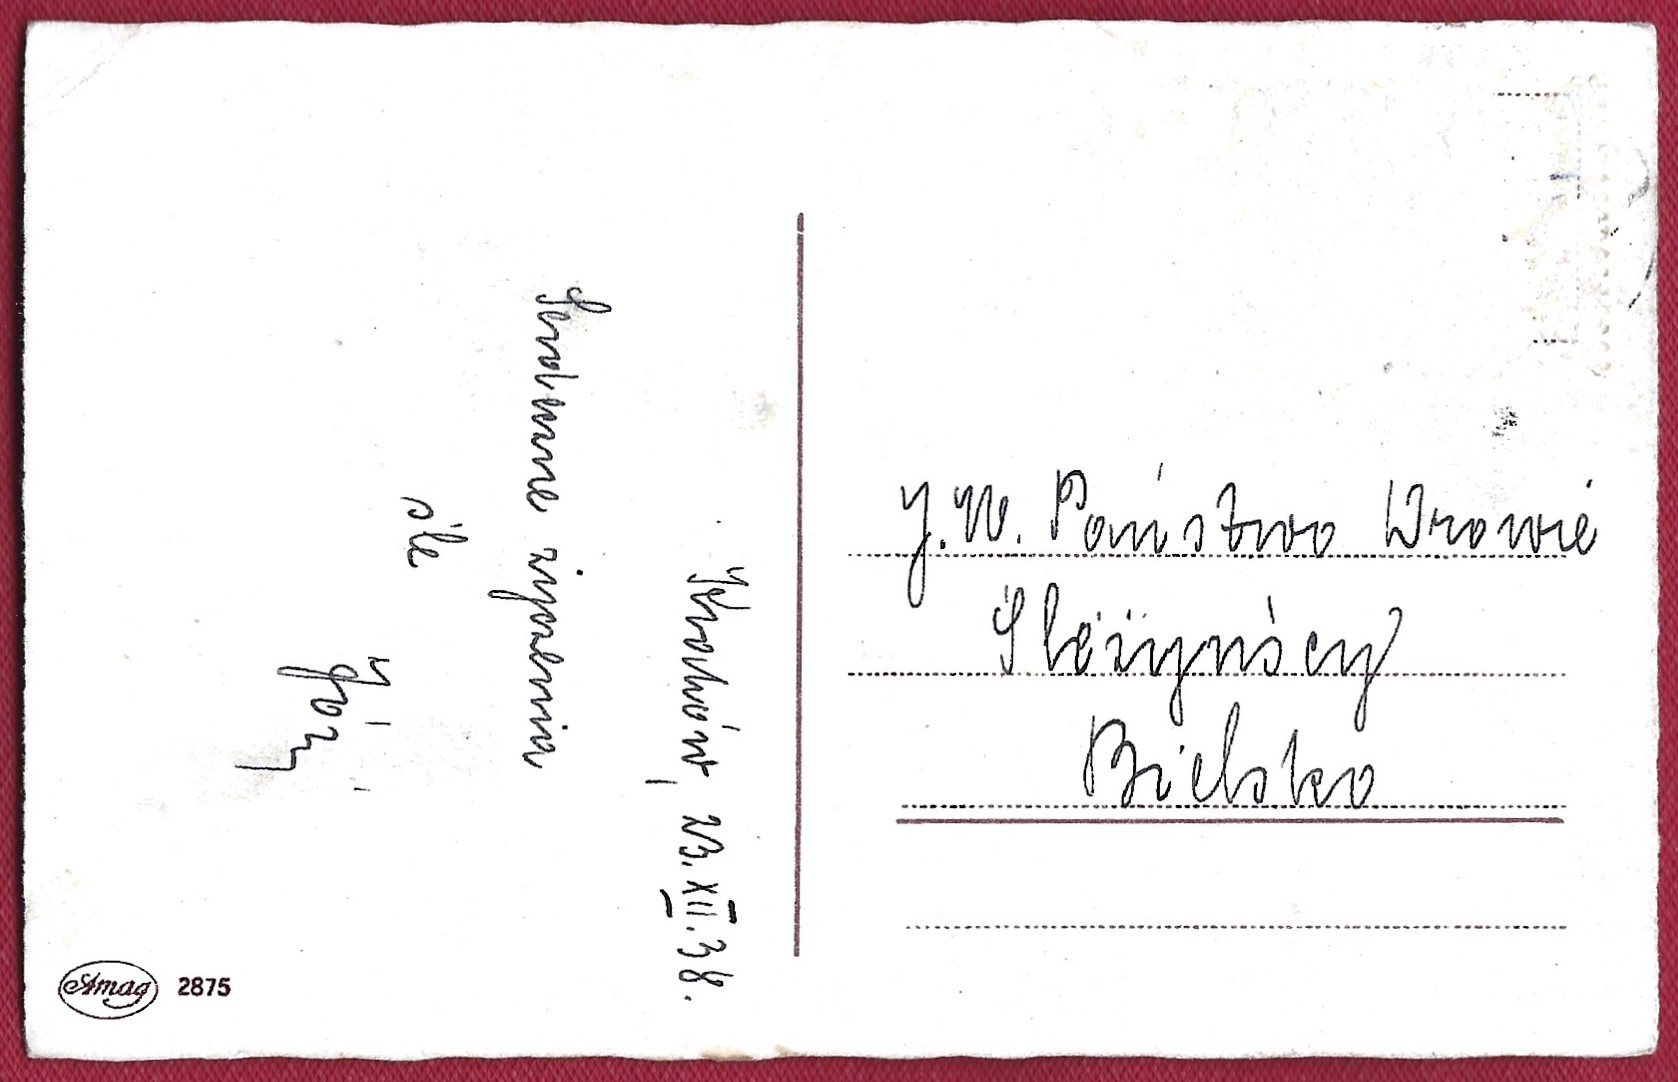 Kraków, 23.XII.38.
Serdeczne życzenia
śle
J. W. Państwo Drowie
Ślężyńscy
Bielsko
Amag 2875